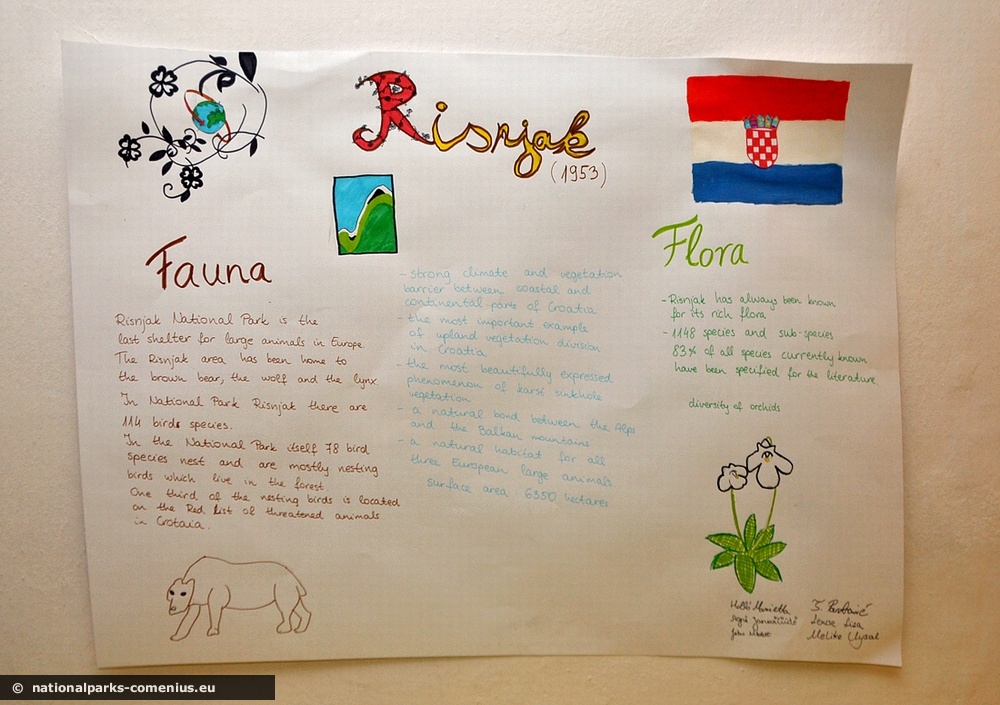 Risnjak
(1953)
Fauna
Risnjak National Park is the
last shelter for large animals in Europe.
The Risnjak area has been home to
the brown bear, the wolf and the lynx.
In National Park Risnjak there are
114 birds species.
In the National Park itself 78 bird
species nest and are mostly nesting
birds which live in the forest.
One third of the nesting birds is located
on the Red list of threatened animals
in Crotaia.
- strong climate and vegetation
barrier between coastal and
continental parts of Croatia
- the most important example
of upland vegetation division
in Croatia
- the most beautifully expressed
phenomenon of karst sinkhole
vegetation
- a natural bond between the Alps
and the Balkan mountains
- a natural habitat for all
three European large animals
surface area 6350 hectares
Flora
- Risnjak has always been known
for its rich flora
- 1148 species and sub-species
83% of all species currently known
have been specified for the literature
diversity of orchids
Melike Uysal
© nationalparks-comenius.eu